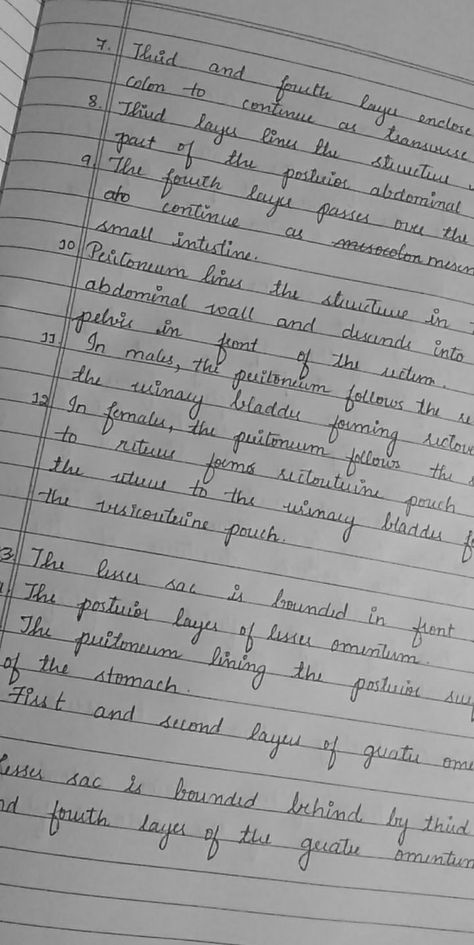 7. Third and fourth layer enclose
colon to continue as transverse
8. Third layer lines the structure
part of the posterior abdominal
9. The fourth layer passes over the
continue as mesocolon mesen
small intestine.
10 Peritoneum lines the structure in
abdominal wall and discends into
pelvis in front of the rectum.
11. In males, the peritoneum follows the re
the urinary bladder forming rectove
12 In females, the peritoneum follows the
to uterus forms rectouterine pouch
the uterus to the urinary bladder fo
the vesicouterine pouch.
3. The lesser sac is bounded in front
The posterior layer of lesser omentum.
The peritoneum lining the posterior sur
of the stomach.
First and second layer of greater ome
lesser sac is bounded behind by third
nd fourth layer of the greater omentum